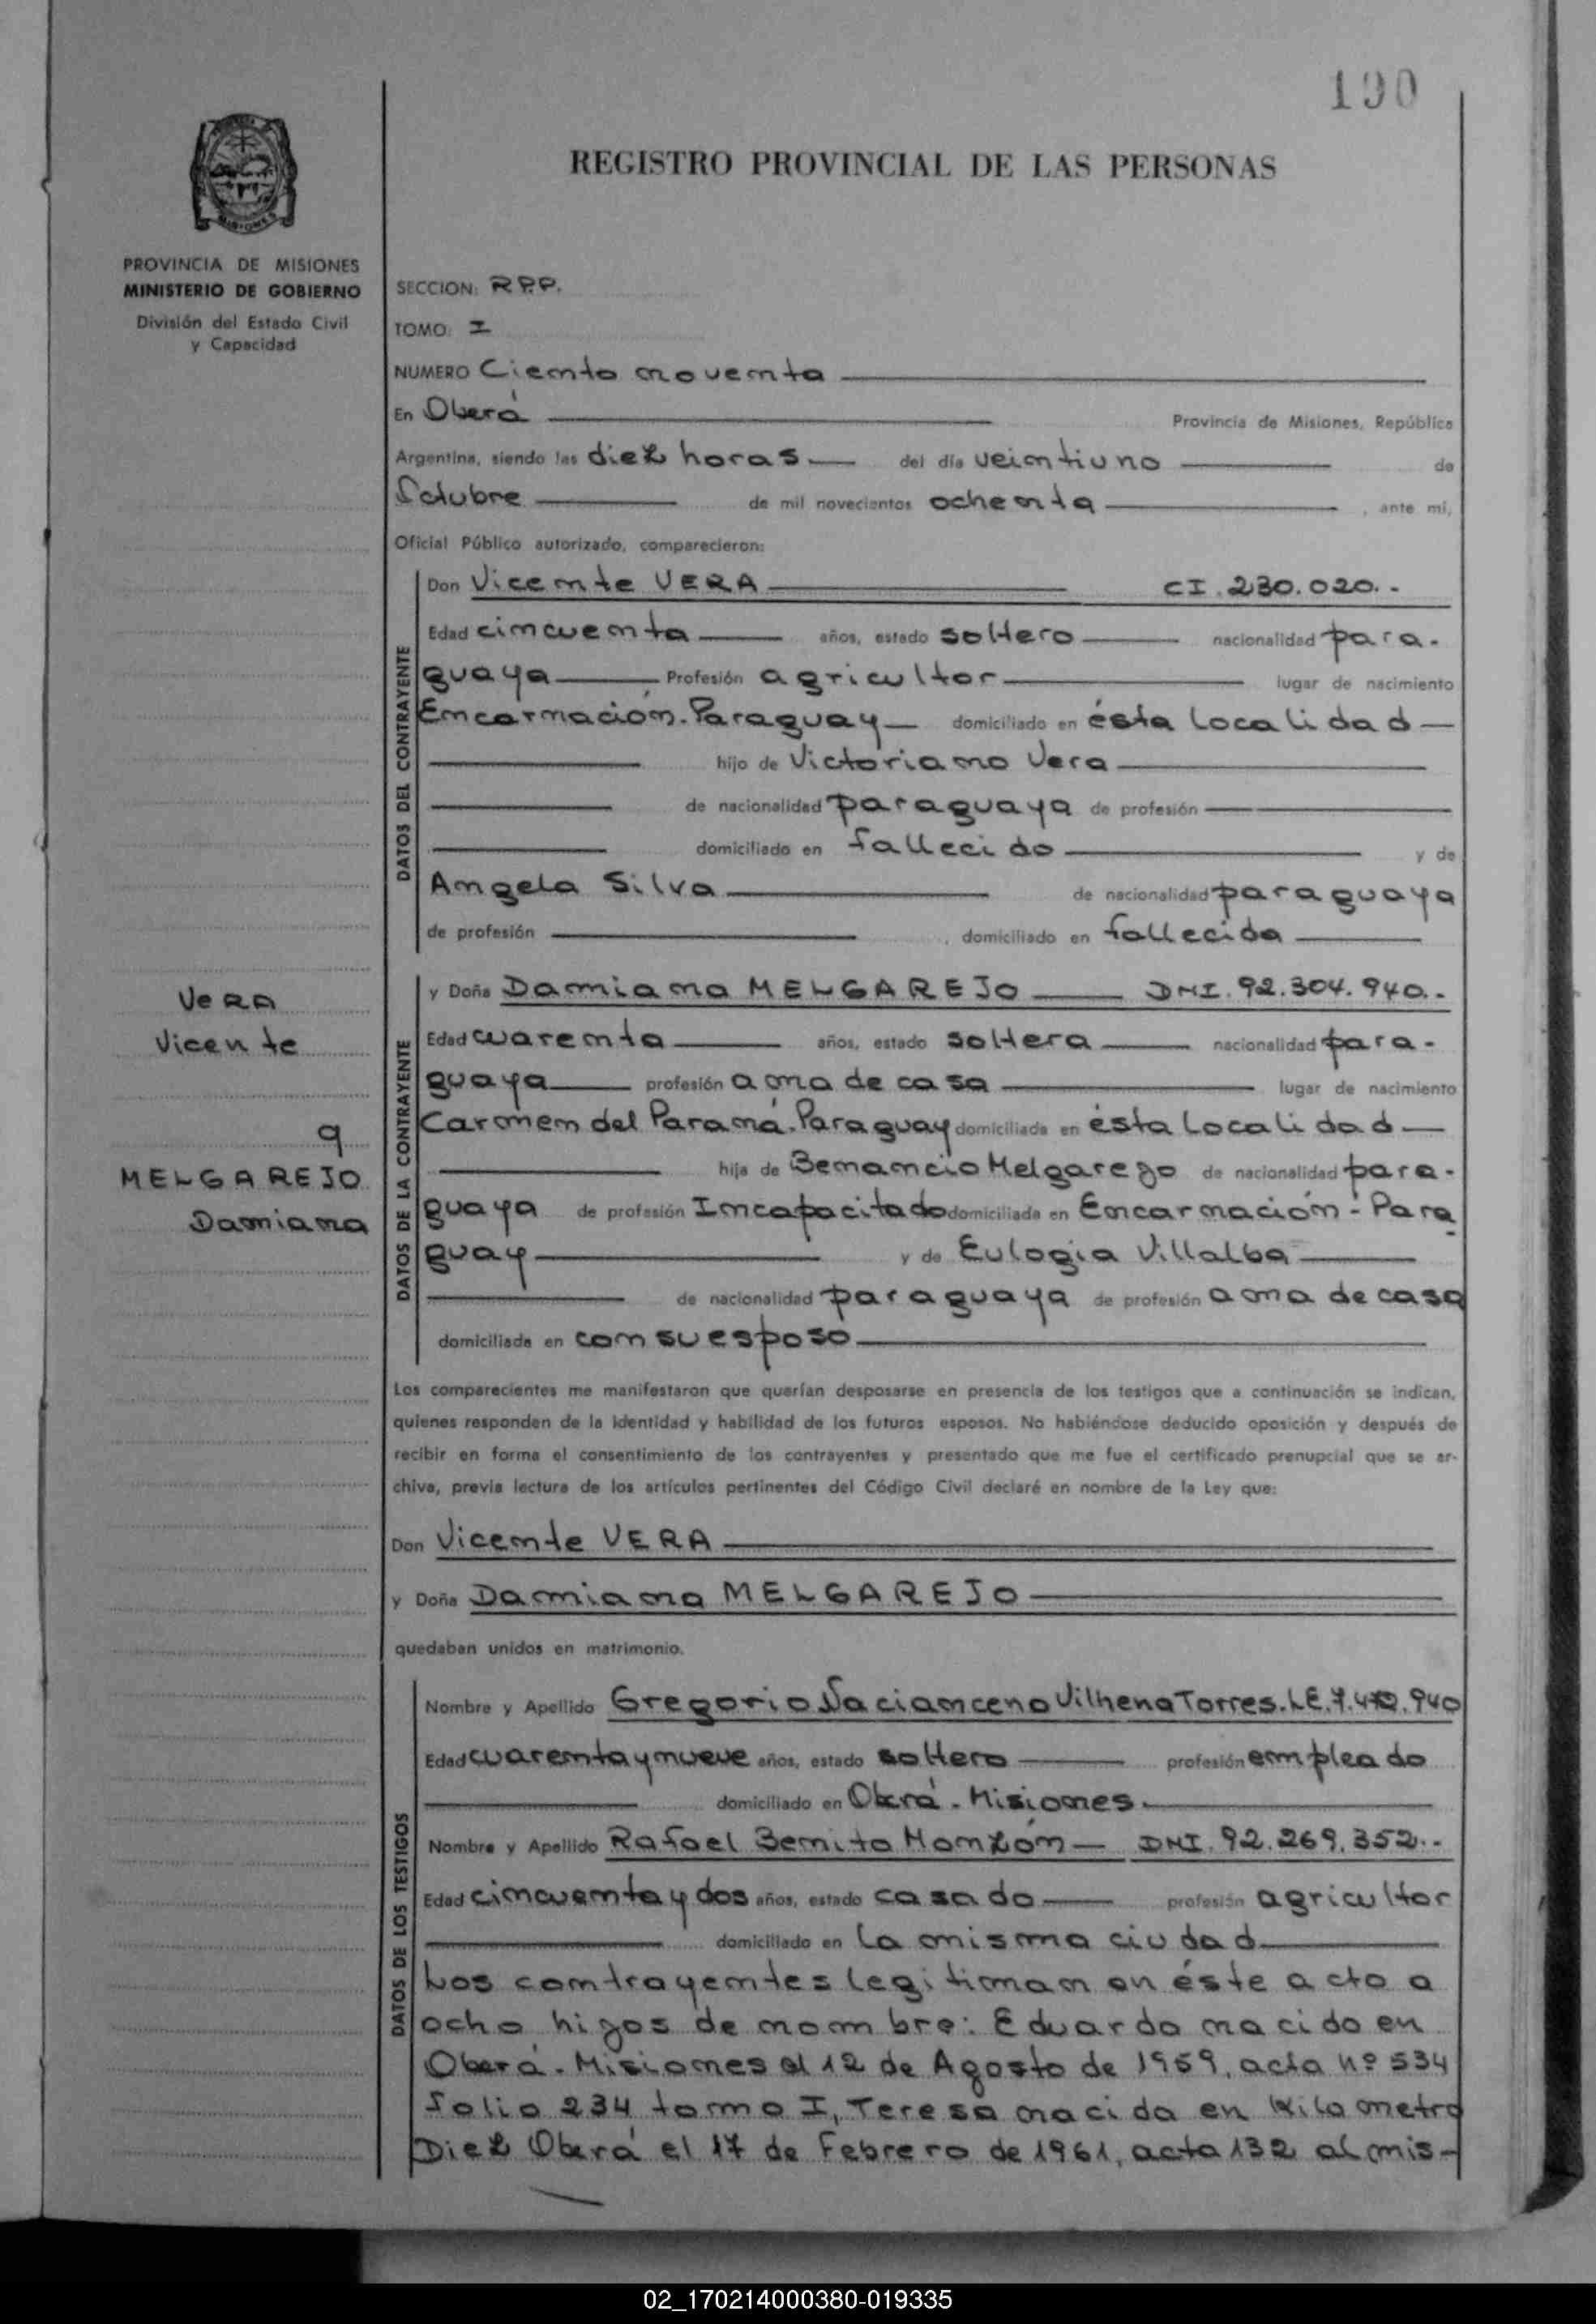 190
REGISTRO PROVINCIAL DE LAS PERSONAS
MISIONES
PROVINCIA DE MISIONES
MINISTERIO DE GOBIERNO
División del Estado Civil
y Capacidad
SECCION: R.P.P.
TOMO: I
NUMERO Ciento noventa
En Oberá Provincia de Misiones, República
Argentina, siendo las diez horas del día veintiuno de
Octubre de mil novecientos ochenta, ante mi,
Oficial Público autorizado, comparecieron:
DATOS DEL CONTRAYENTE
Don Vicente VERA CI. 230.020.-
Edad cincuenta años, estado soltero nacionalidad para-
guaya Profesión agricultor lugar de nacimiento
Encarnación. Paraguay domiciliado en ésta localidad
hijo de Victoriano Vera
de nacionalidad paraguaya de profesión
domiciliado en fallecido y de
Angela Silva de nacionalidad paraguaya
de profesión , domiciliado en fallecida
VERA
Vicente
y
MELGAREJO
Damiana
DATOS DE LA CONTRAYENTE
y Doña Damiana MELGAREJO DNI. 92.304.940.-
Edad cuarenta años, estado soltera nacionalidad para-
guaya profesión ama de casa lugar de nacimiento
Carmen del Paraná. Paraguay domiciliada en ésta localidad
hija de Benancio Melgarejo de nacionalidad para-
guaya de profesión Incapacitado domiciliada en Encarnación - Para
guay y de Eulogia Villalba
de nacionalidad paraguaya de profesión ama de casa
domiciliada en con su esposo
Los comparecientes me manifestaron que querían desposarse en presencia de los testigos que a continuación se indican,
quienes responden de la identidad y habilidad de los futuros esposos. No habiéndose deducido oposición y después de
recibir en forma el consentimiento de los contrayentes y presentado que me fue el certificado prenupcial que se ar-
chiva, previa lectura de los artículos pertinentes del Código Civil declaré en nombre de la Ley que:
Don Vicente VERA
y Doña Damiana MELGAREJO
quedaban unidos en matrimonio.
DATOS DE LOS TESTIGOS
Nombre y Apellido Gregorio Nacianceno Vilhena Torres. LE. 7.472.940
Edad cuarenta y nueve años, estado soltero profesión empleado
domiciliado en Oberá. Misiones.
Nombre y Apellido Rafael Benito Monzón DNI. 92.269.352.-
Edad cincuenta y dos años, estado casado profesión agricultor
domiciliado en la misma ciudad
Los contrayentes legitiman en éste acto a
ocho hijos de nombre: Eduardo nacido en
Oberá. Misiones el 12 de Agosto de 1959, acta nº 534
folio 234 tomo I, Teresa nacida en Kilometro
Diez Oberá el 17 de Febrero de 1961, acta 132 al mis-
02_170214000380-019335